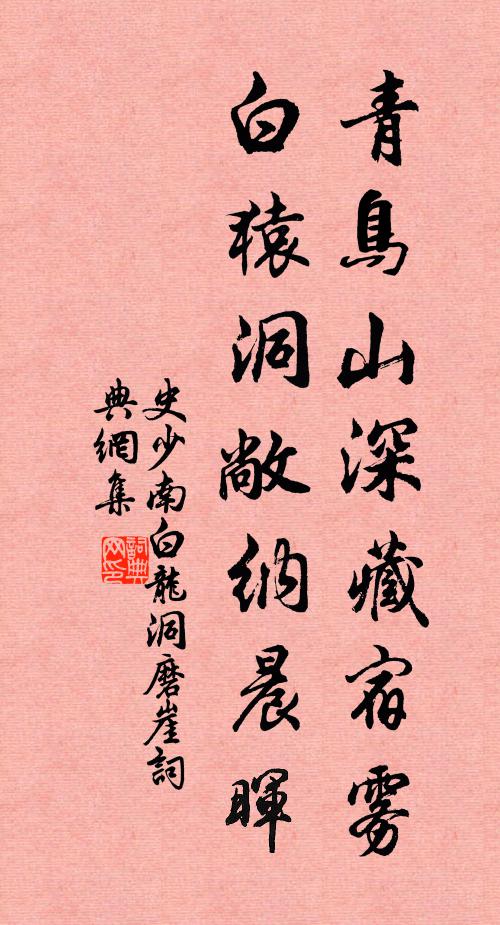 青鳥山深藏宿霧
白猿洞敞納晨暉
史少南白龍洞磨崖詞
典網集
詞典
网印